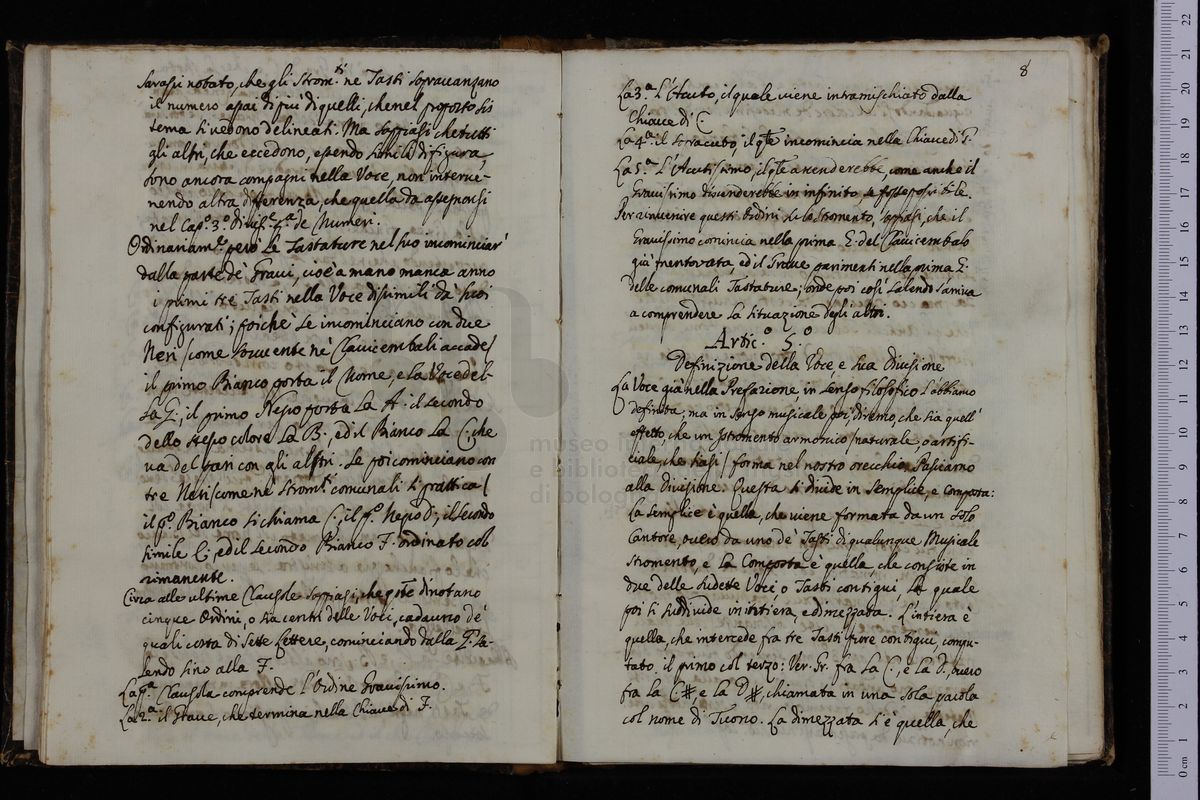 sarassi notato, che gli Strom.ti ne Tasti sopravanzano
il numero assai di più di quelli, che nel proposto sis
tema si vedono delineati. Ma sappiasi che tutti
gli altri, che eccedono, essendo simili di figura
sono ancora compagni nella Voce, non interve-
nendo altra differenza, che quella da assegnarsi
nel Cap.o 3.o de Numeri.
Ordinariam.e però le Tastature nel suo incominciar
dalla parte de Gravi, cioè a mano manca anno
i primi tre Tasti nella Voce dissimili da suoi
configurati; poiché se incominciano con due
Neri /come sovvente nè Clavicembali accade/
il primo Bianco porta il Nome, e la Voce del-
la G; il primo Negro porta la A: il secondo
dello stesso colore la B., ed il Bianco la C; che
va del pari con gli altri. Se poi cominciano con
tre Neri /come nè Strom.ti comunali si prattica/
il p.o Bianco si chiama C; il p.o Negro D; il secondo
simile E; ed il secondo Bianco F. ordinato col
rimanente.
Circa alle ultime Clausole sappiasi, che dinotano
cinque Ordini, o sia centri delle Voci, cadauno de
quali costa di sette Lettere, cominciando dalla sa-
lendo sino alla F.
La p.a Clausola comprende l'Ordine Gravissimo.
La 2.a il Grave, che termina nella Chiave di F.
8
La 3.a L'Acuto, il quale viene intramischiato dalla
Chiave di C
La 4.a il Sovracuto, il qle incomincia nella Chiave di
La 5.a L'Acutissimo, il qle ascenderebbe, come anche il
Gravissimo discenderebbe in infinito se fosse possibile.
Per rinvenire questi Ordini su lo stromento, sappiasi, che il
Gravissimo comincia nella prima G. del Clavicembalo
già mentovata, ed il Grave parimenti nella prima G.
delle comunali Tastature; onde poi così salendo s'arriva
a comprendere la situazione degli altri.
Artic.o 5.o
Definizione della Voce, e sua Divisione
La Voce già nella Prefazione in senso filosofico l'abbiamo
definita; ma in senso musicale poi, diremo, che sia quell'
effetto che un Istromento armonico /naturale, o artifi-
ciale, che siasi/ forma nel nostro orecchio. Passiamo
alla Divisione. Questa si divide in Semplice, e Composta:
La Semplice è quella, che viene formata da un Solo
Cantore, overo da uno de' Tasti di qualunque Musicale
Stromento, e la Composta è quella, che consiste in
due delle sudette Voci, o Tasti contigui, La quale
poi si suddivide in intiera, e dimezzata. L'intiera è
quella, che intercede fra tre Tasti pure contigui, compu-
tato, il primo col terzo: Ver. Gr. fra la C, e la D., overo
fra la C# e la D#, chiamata in una sola parola
col nome di Tuono. La dimezzata si è quella, che
museo
e biblioteca
di bologna